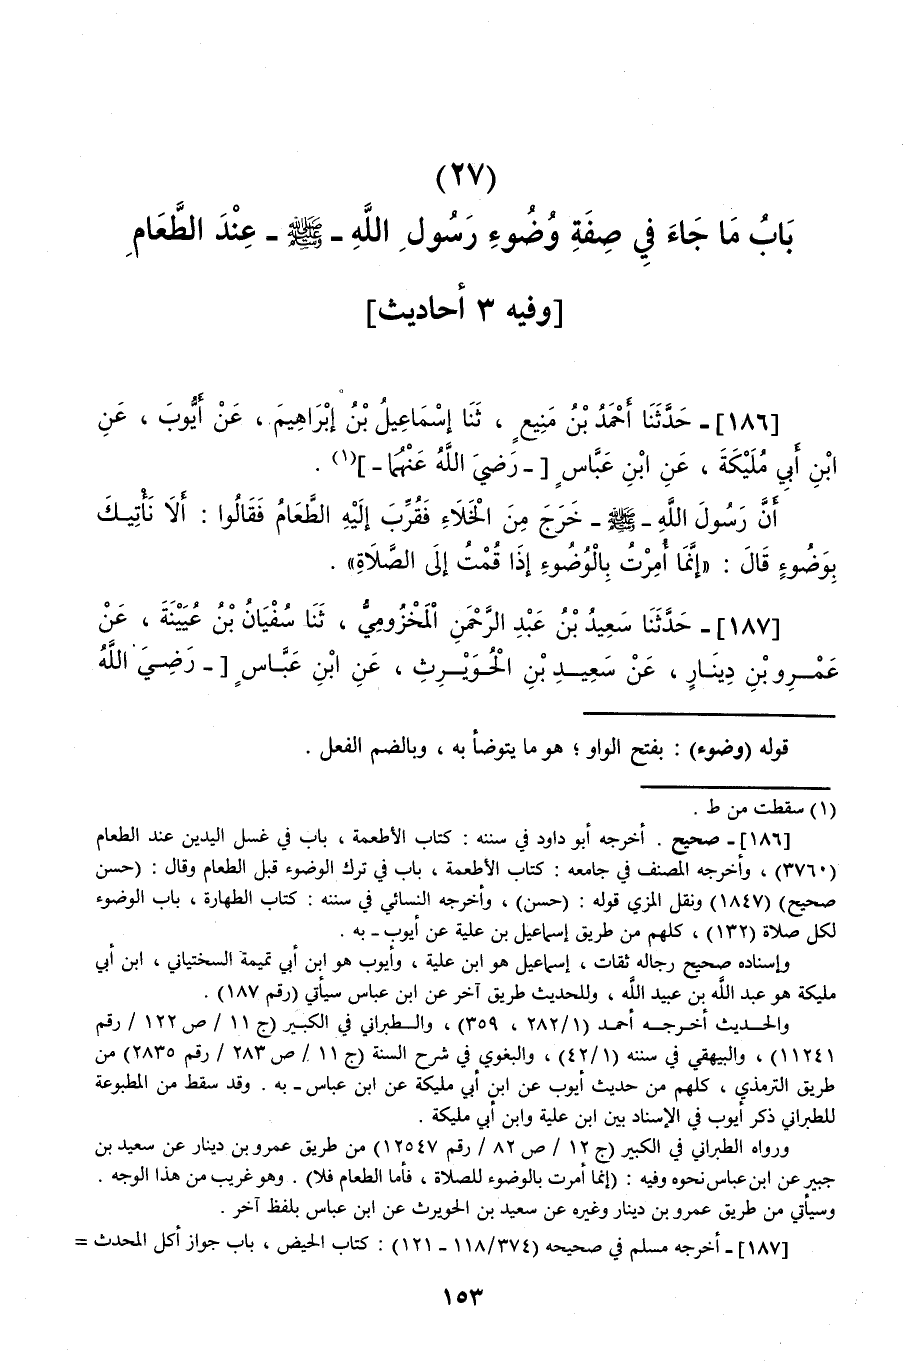 (٢٧)
بَابُ مَا جَاءَ فِي صِفَةِ وُضُوءِ رَسُولِ اللَّهِ ـ ﷺ ـ عِنْدَ الطَّعَامِ
[وفيه ٣ أحاديث]
[١٨٦] ـ حَدَّثَنَا أَحْمَدُ بْنُ مَنِيعٍ ، ثَنَا إِسْمَاعِيلُ بْنُ إِبْرَاهِيمَ ، عَنْ أَيُّوبَ ، عَنِ
ابْنِ أَبِي مُلَيْكَةَ ، عَنِ ابْنِ عَبَّاسٍ [ـ رَضِيَ اللَّهُ عَنْهُمَا ـ](١) .
أَنَّ رَسُولَ اللَّهِ ـ ﷺ ـ خَرَجَ مِنَ الْخَلَاءِ فَقُرِّبَ إِلَيْهِ الطَّعَامُ فَقَالُوا : أَلَا نَأْتِيكَ
بِوَضُوءٍ قَالَ : «إِنَّمَا أُمِرْتُ بِالْوُضُوءِ إِذَا قُمْتُ إِلَى الصَّلَاةِ» .
[١٨٧] ـ حَدَّثَنَا سَعِيدُ بْنُ عَبْدِ الرَّحْمَنِ الْمَخْزُومِيُّ ، ثَنَا سُفْيَانُ بْنُ عُيَيْنَةَ ، عَنْ
عَمْرِو بْنِ دِينَارٍ ، عَنْ سَعِيدِ بْنِ الْحُوَيْرِثِ ، عَنِ ابْنِ عَبَّاسٍ [ـ رَضِيَ اللَّهُ
قوله (وضوء) : بفتح الواو ؛ هو ما يتوضأ به ، وبالضم الفعل .
(١) سقطت من ط .
[١٨٦] ـ صحيح . أخرجه أبو داود في سننه : كتاب الأطعمة ، باب في غسل اليدين عند الطعام
(٣٧٦٠) ، وأخرجه المصنف في جامعه : كتاب الأطعمة ، باب في ترك الوضوء قبل الطعام وقال : (حسن
صحيح) (١٨٤٧) ونقل المزي قوله : (حسن) ، وأخرجه النسائي في سننه : كتاب الطهارة ، باب الوضوء
لكل صلاة (١٣٢) ، كلهم من طريق إسماعيل بن علية عن أيوب ـ به .
وإسناده صحيح رجاله ثقات ، إسماعيل هو ابن علية ، وأيوب هو ابن أبي تميمة السختياني ، ابن أبي
مليكة هو عبد الله بن عبيد الله ، وللحديث طريق آخر عن ابن عباس سيأتي (رقم ١٨٧) .
والحديث أخرجه أحمد (٢٨٢/١ ، ٣٥٩) ، والطبراني في الكبير (ج ١١ / ص ١٢٢ / رقم
١١٢٤١) ، والبيهقي في سننه (٤٢/١) ، والبغوي في شرح السنة (ج ١١ / ص ٢٨٣ / رقم ٢٨٣٥) من
طريق الترمذي ، كلهم من حديث أيوب عن ابن أبي مليكة عن ابن عباس ـ به . وقد سقط من المطبوعة
للطبراني ذكر أيوب في الإسناد بين ابن علية وابن أبي مليكة .
ورواه الطبراني في الكبير (ج ١٢ / ص ٨٢ / رقم ١٢٥٤٧) من طريق عمرو بن دينار عن سعيد بن
جبير عن ابن عباس نحوه وفيه : (إنما أمرت بالوضوء للصلاة ، فأما الطعام فلا) . وهو غريب من هذا الوجه .
وسيأتي من طريق عمرو بن دينار وغيره عن سعيد بن الحويرث عن ابن عباس بلفظ آخر .
[١٨٧] ـ أخرجه مسلم في صحيحه (١١٨/٣٧٤ ـ ١٢١) : كتاب الحيض ، باب جواز أكل المحدث =
١٥٣